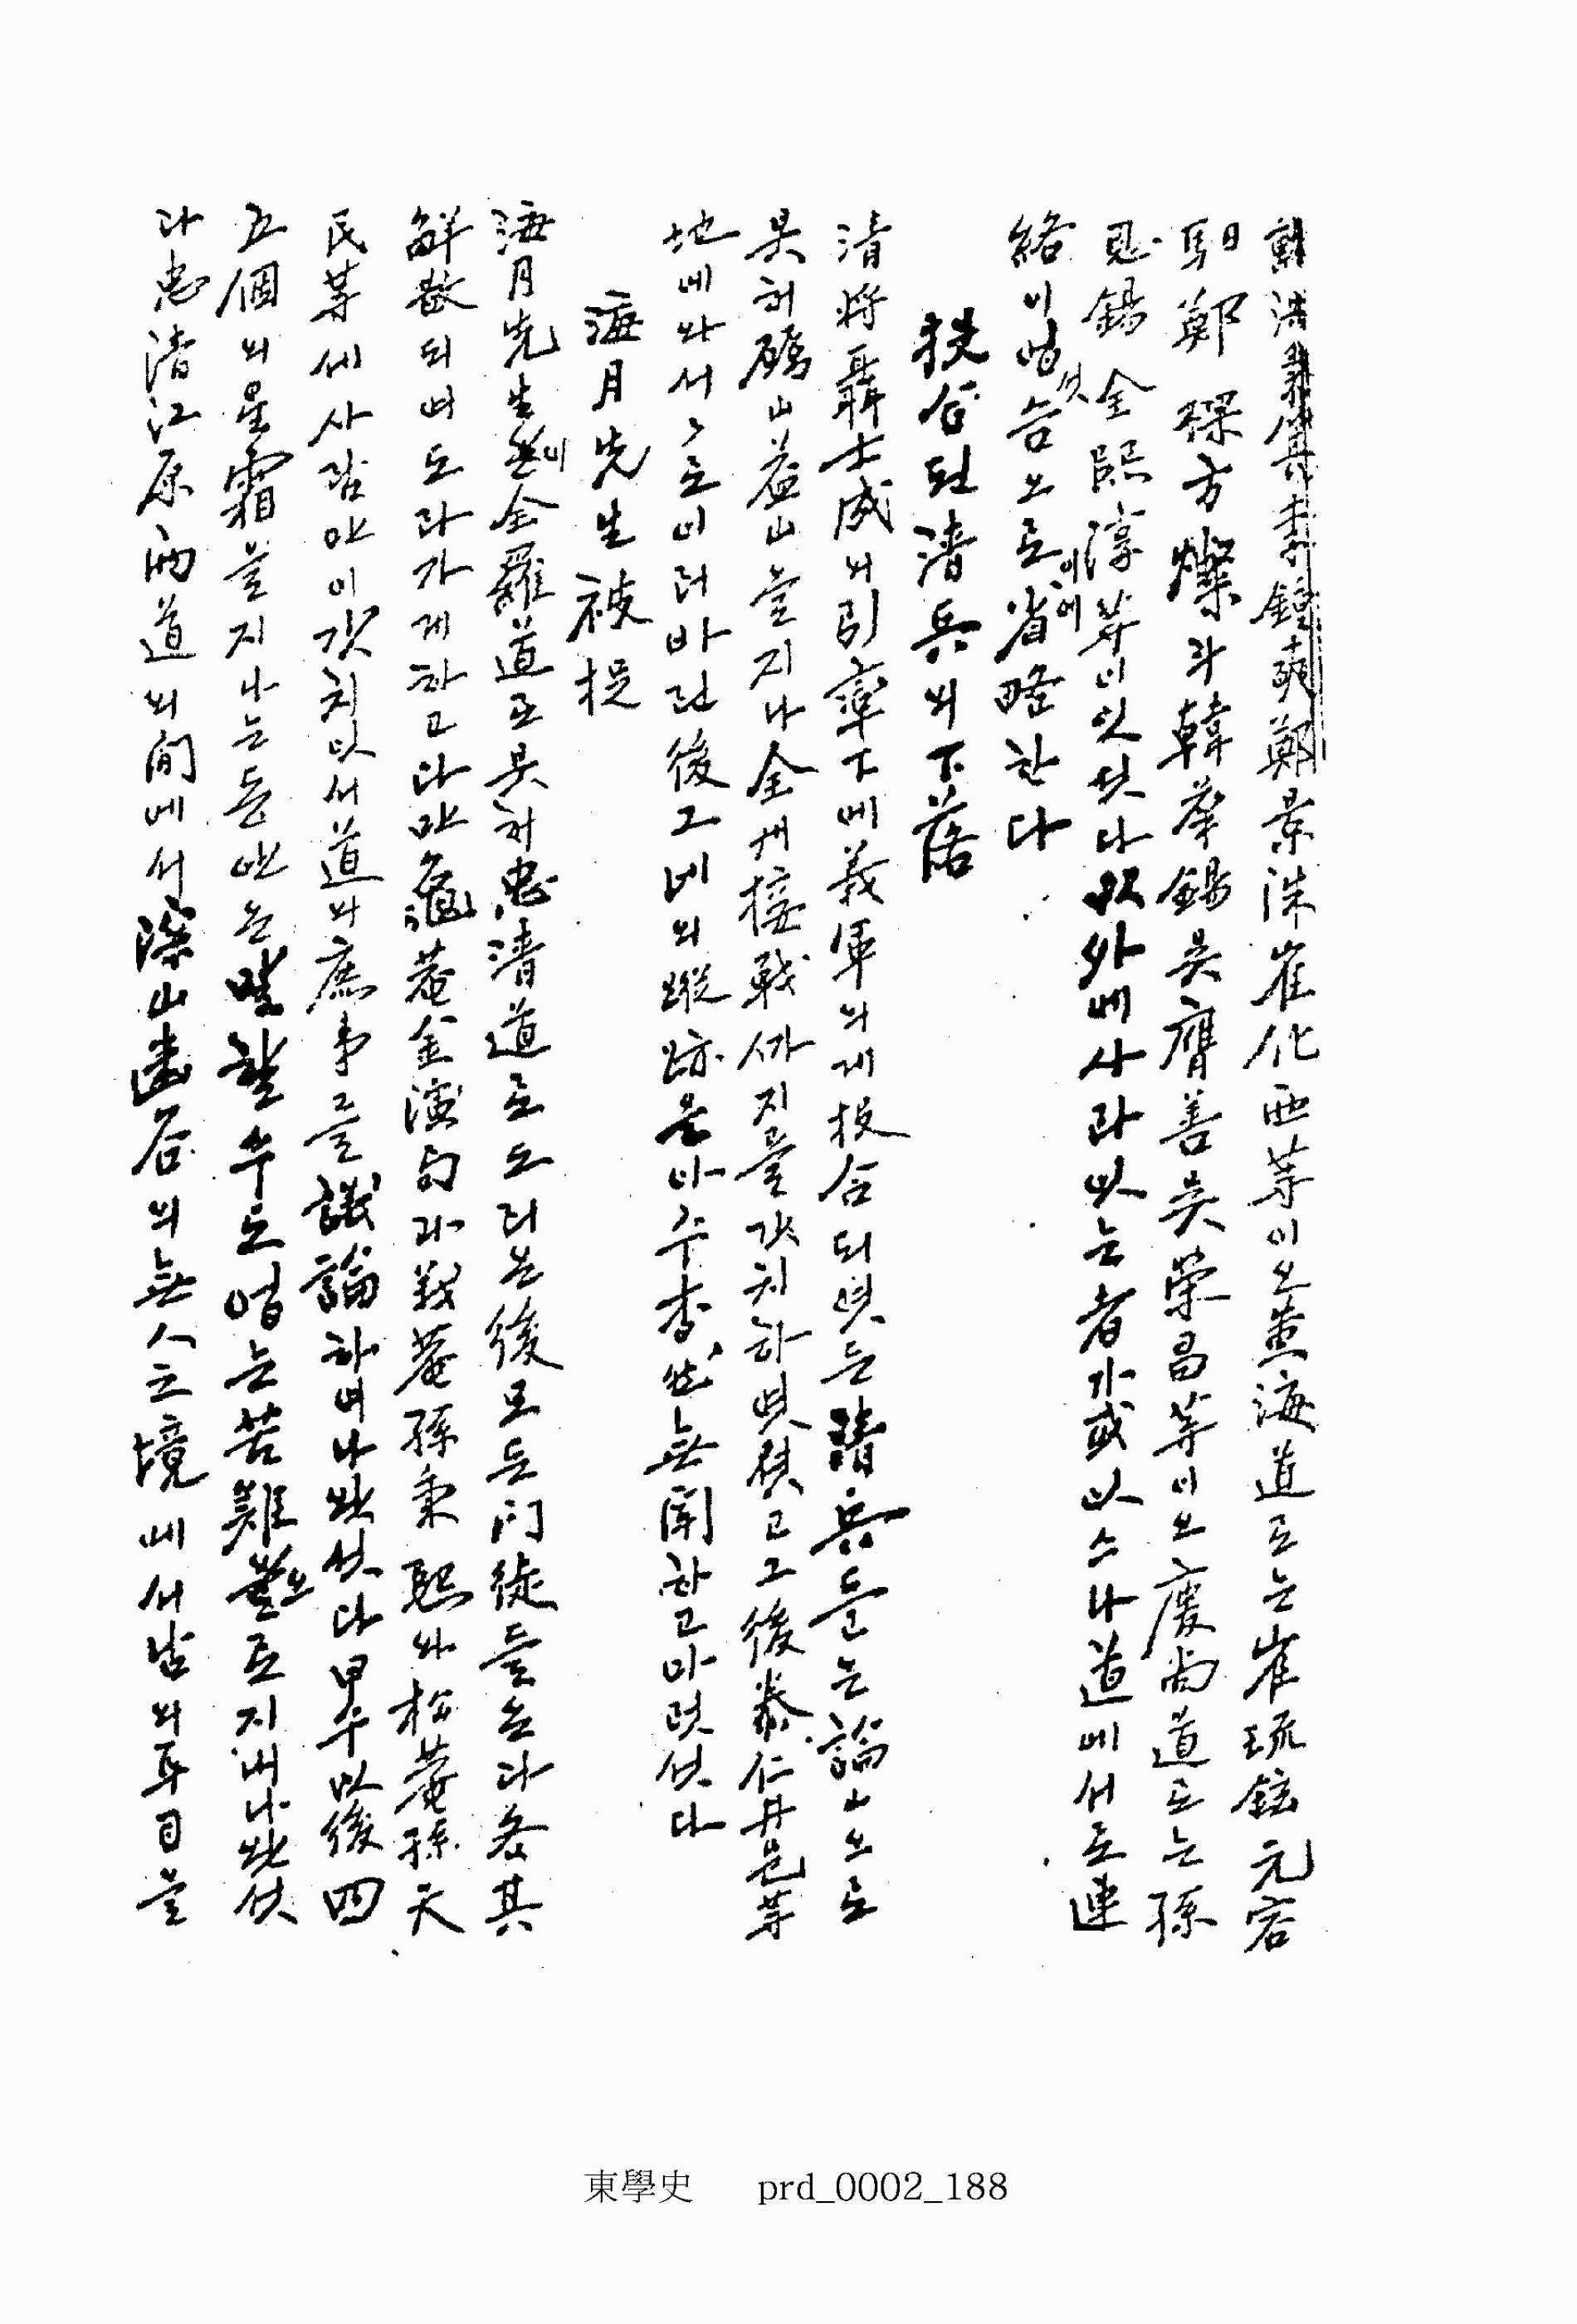 鄭景洙崔化西等이오黃海道로는崔琉鉉元容
馹鄭 방燦斗韓華錫吳膺善吳榮昌等이오慶尙道로는孫
殷錫金熙淳等이잇섯다以外에사라잇는者가或잇스나道에서로連
絡이업슴으로省略한다
扶合된淸兵의下落
淸將聶士成의引率下에義軍의게投合되엿든淸兵들은論山으로
붓허礪山益山을지나全州接戰까지를갓치하엿섯고그後泰仁井邑等
地에와서서로이러바린後그네의蹤跡은아주杳然無聞하고마럿섯다
海月先生被捉
海月先生이全羅道로붓허忠淸道로도라온後모든門徒들은다各其
解散되여도라가게하고다만龜菴金演局과義菴孫秉熙와松菴孫天
民等세사람만이갓치잇서道의庶事를議論하며나왓섯다甲午以後四
五個의星霜을지나는동안은 할수도업는苦難으로지내나왓섯
다忠淸江原兩道의間에서深山幽谷의無人之境에서남의耳目을
東學史 prd_0002_188